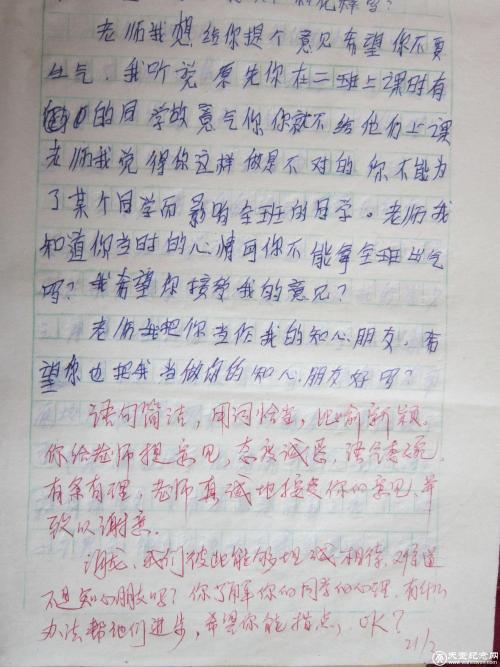 老师我想给你提个意见希望你不要
生气．我听说原先你在二班上课时有
的同学故意气你你就不给他们上课
老师我觉得你这样做是不对的你不能为
了某个同学而影响全班的同学。老师我
知道你当时的心情可你不能拿全班出气
吗？我希望你接受我的意见？
老师我把你当作我的知心朋友．希
望你也把我当做你的知心朋友好吗？
语句简洁，用词恰当，比喻新颖．
你给老师提意见，态度诚恳，语气委婉．
有条有理，老师真诚地接受你的意见，并
致以谢意．
我们彼此能够坦诚相待，难道
不是知心朋友吗？你了解你的同学们心理，有什么
办法帮他们进步，希望你能指点，OK？
21/2
天堂纪念网